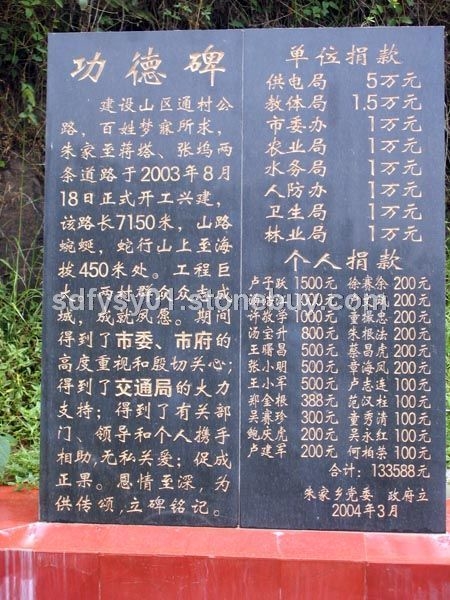 功德碑
建设山区通村公
路，百姓梦寐所求，
朱家至蒋塔、张坞两
条道路于2003年8月
18日正式开工兴建，
该路长7150米，山路
蜿蜒，蛇行山上至海
拔450米处。工程巨
大，两村群众众志成
城，成就夙愿。期间
得到了市委、市府的
高度重视和殷切关心；
得到了交通局的大力
支持；得到了有关部
门、领导和个人携手
相助，无私关爱；促成
正果。恩情至深，为
供传颂，立碑铭记。
单位捐款
供电局 5万元
教体局 1.5万元
市委办 1万元
农业局 1万元
水务局 1万元
人防办 1万元
卫生局 1万元
林业局 1万元
个人捐款
卢子跃 1500元 徐赛徐 200元
1000元 200元
许教学 1000元 童振忠 200元
汤宝升 800元 朱根法 200元
王曙昌 500元 蔡昌虎 200元
张小明 500元 章海风 200元
王小军 500元 卢志连 100元
郑金根 388元 范汉柱 100元
吴赛珍 300元 董秀清 100元
鲍庆虎 200元 吴永红 100元
卢建军 200元 何柏荣 100元
合计：133588元
朱家乡党委 政府立
2004年3月
sdfysy01.stonebuy.com